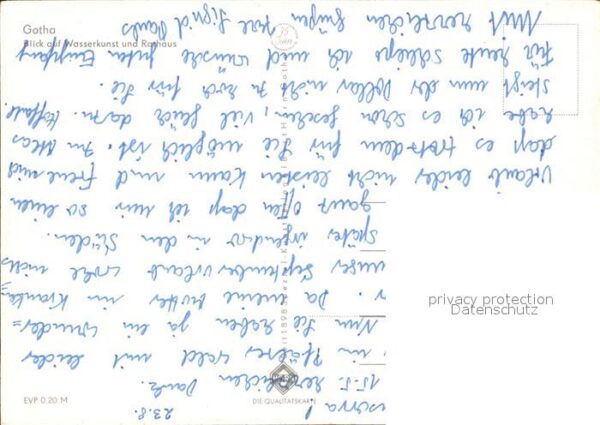 Gotha
Blick auf Wasserkunst und Rathaus
23.8.
15.8. herzlichen Dank.
mit leider
Nun Sie haben ja ein wunder=
Da meine Mutter im Kranken
unser September Urlaub wohl nichts
später irgendwo in den Süden.
ganz offen daß ich mir so einen
Urlaub leider nicht leisten kann und freue mich
daß es trotzdem für Sie möglich ist. Im Atlas
habe ich es schon gesehen, viel Glück dazu. Hoffentl.
steigt nun der Dollar nicht zu hoch für Sie.
Für heute schließe ich und wünsche guten Empfang
Mit herzlichen Grüßen Ihre Sigrid
EVP 0.20 M
DIE QUALITÄTSKARTE
privacy protection
Datenschutz